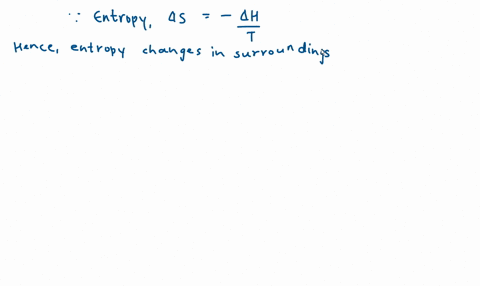 ∵ Entropy, ΔS = - ΔH/T
Hence, entropy changes in surroundings